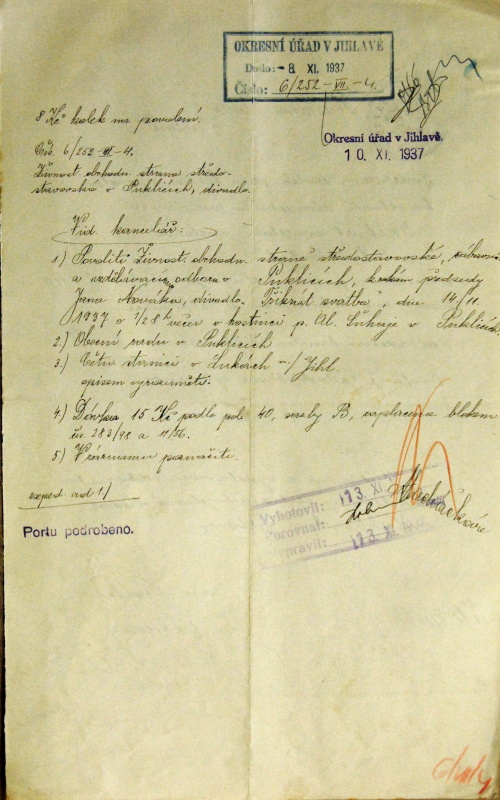 OKRESNÍ ÚŘAD V JIHLAVĚ
Došlo: - 8. XI. 1937
Číslo: 6/252-VII-4.
Okresní úřad v Jihlavě.
10. XI. 1937
8 Kč kolek na povolení.
Čís. 6/252-VII-4.
Živnost. obchodn. strana středo-
stavovská v Puklicích, divadlo.
Vid. kancelář:
1) Povoliti Živnost. obchodn. straně středostavovské,
a vzdělávacímu odboru v Puklicích, k rukám předsedy
Jana Nováka, divadlo "Třikrát svatba", dne 14/11.
1937 o 1/2 8 h večer v hostinci p. Al. v Puklicích
2.) Obecní radu v Puklicích
3.) Četn. stanici v Lukách n./Jihl.
opisem vyrozuměti.
4.) Dávka 15 Kč podle pol. 40, sazby B, zaplacena blokem
čís. 283/98 a 11/56.
5.) V záznamu poznačiti.
exped. ad 1/
Portu podrobeno.
Vyhotovil: 13. XI.
Porovnal:
Vypravil: 13. XI.